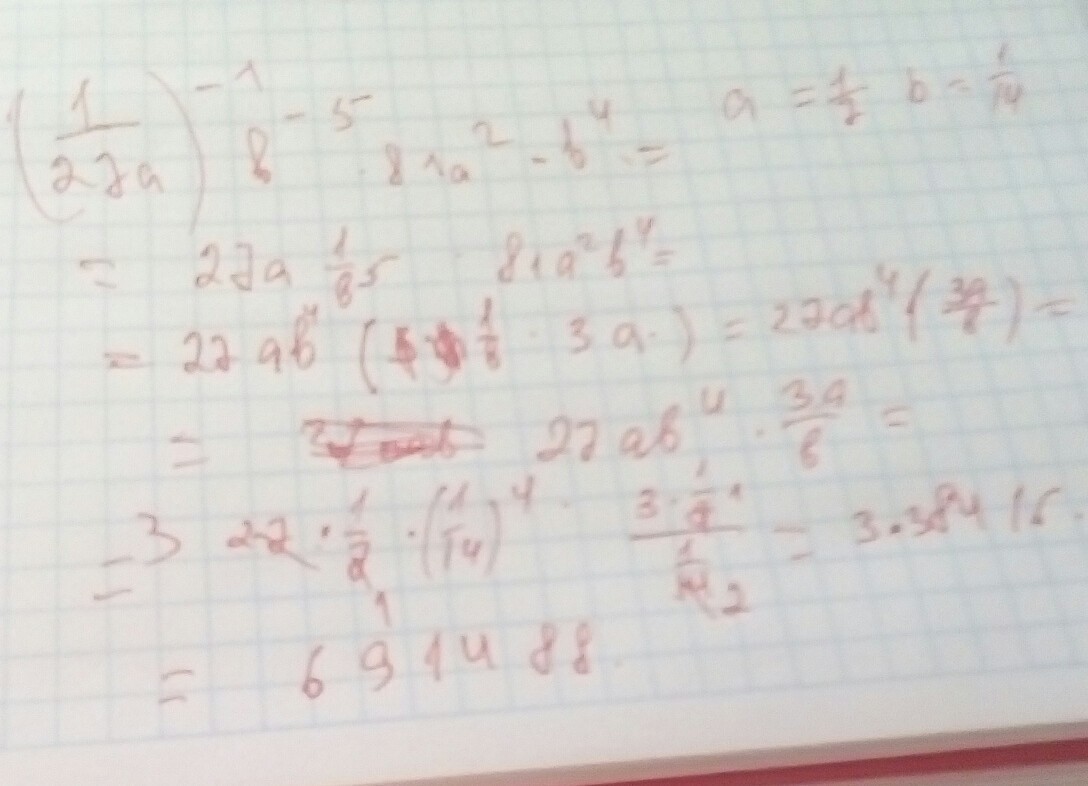 (1/27a)^-1 8^-5 · 81a^2 - b^4 = a = 1/2 b = 1/14
= 27a 1/8 5 81a^2b^4 =
= 27ab^4 ( 1/8 · 3a · ) = 27ab^4 ( 3a/8 ) =
= 27ab^4 · 3a/6 =
= 3 27 · 1/2 · (1/14)^4 · = 3.38416.
= 691488.